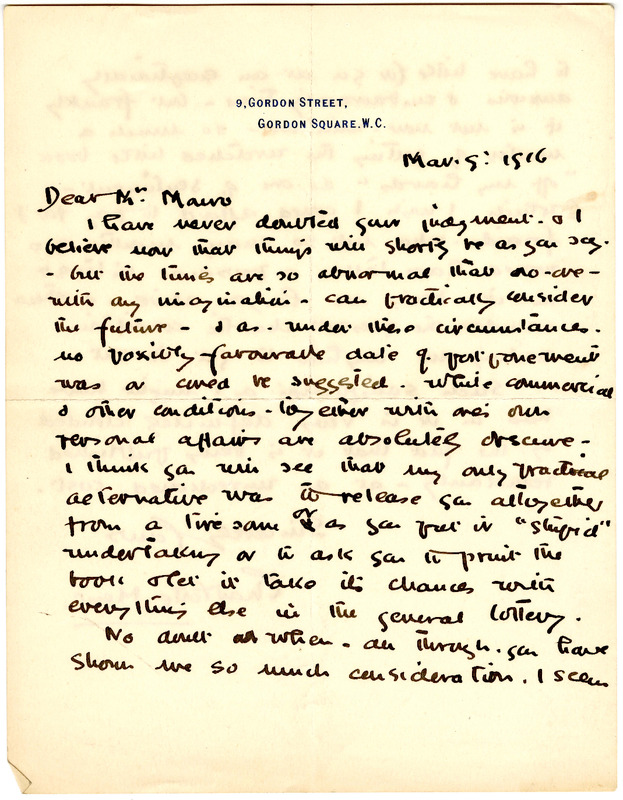 9, GORDON STREET,
GORDON SQUARE. W.C.
Mar. 9: 1916
Dear Mr
I have never doubted your judgment. & I
believe now that things will shortly be as you say.
- but the times are so abnormal that no-one-
with any imagination - can practically consider
the future - & as - under these circumstances.
no possibly favourable date of postponement
was or could be suggested. while commercial
& other conditions - together with one's own
personal affairs are absolutely obscure -
I think you will see that my only practical
alternative was to release you altogether
from a tiresome or as you put it "stupid"
undertaking or to ask you to print the
book & let it take its chances with
everything else in the general lottery.
No doubt when - all through - you have
shown me so much consideration. I seem